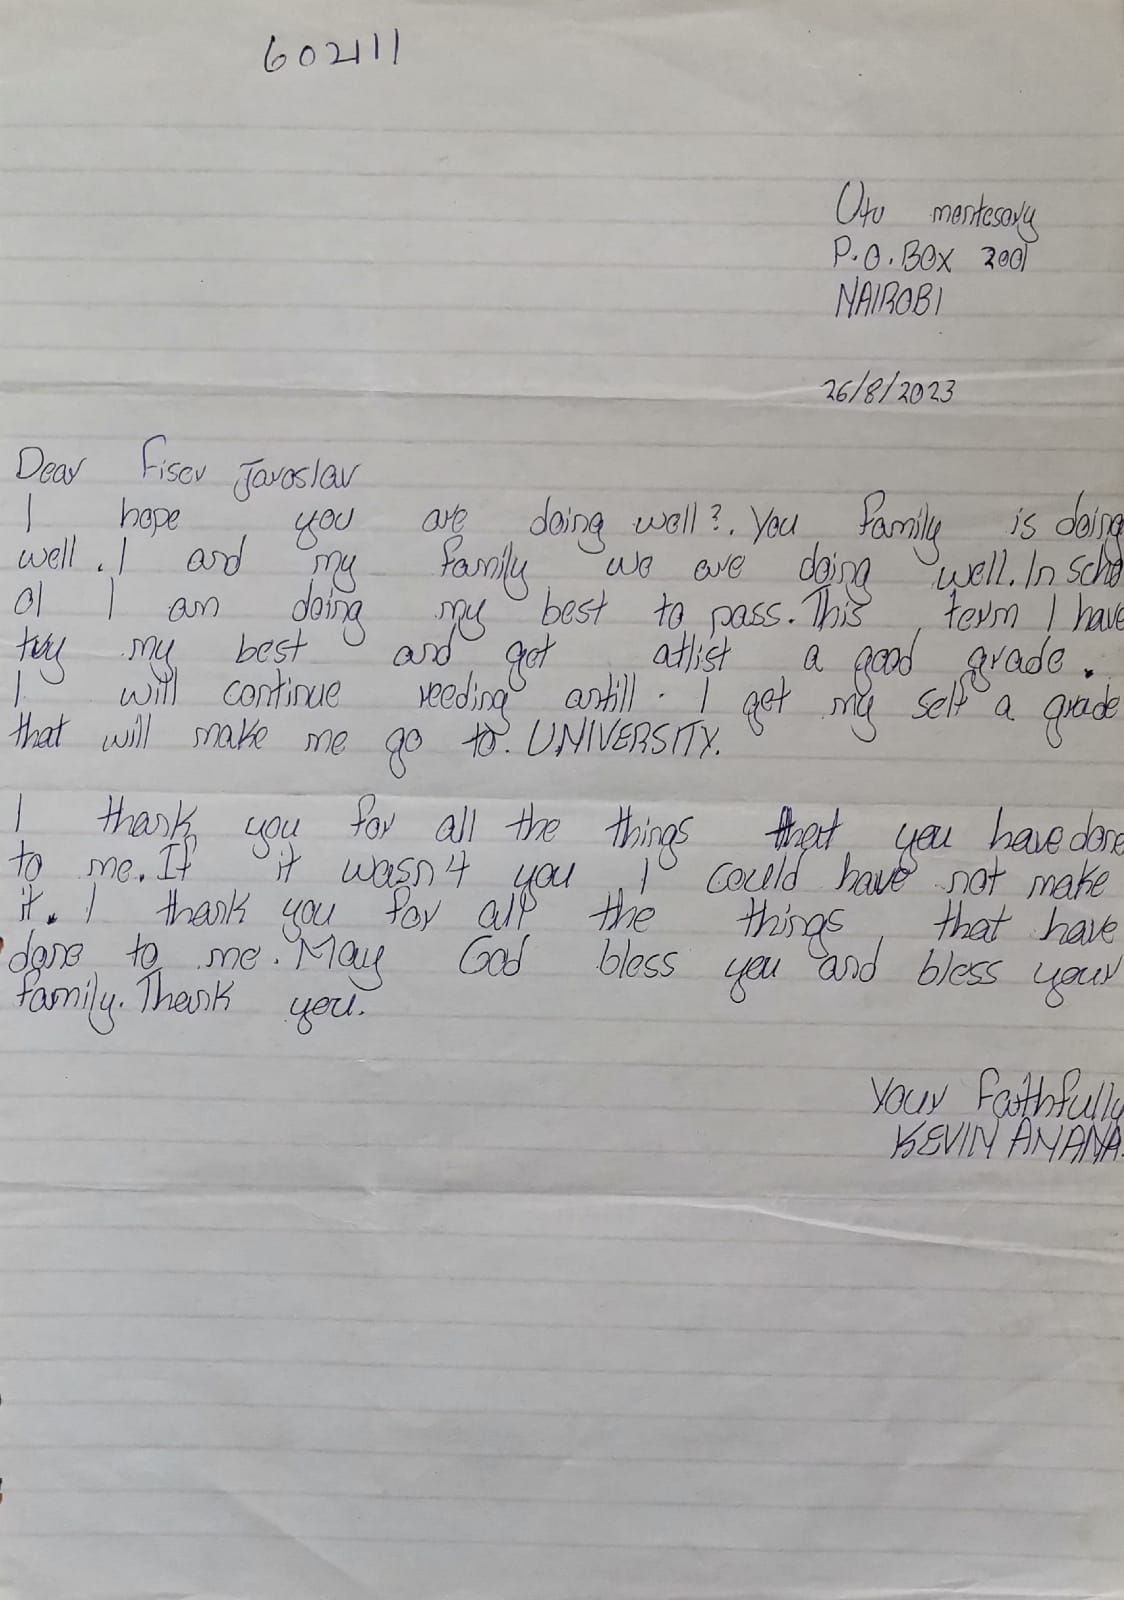 602111
Utu mentesory
P.O. BOX 2001
NAIROBI
26/8/2023
Dear Fiser Jaroslav
I hope you are doing well?. You family is doing
well. I and my family we are doing well. In scho
ol I am doing my best to pass. This term I have
try my best and get atlist a good grade.
I will continue reeding antill. I get my self a grade
that will make me go to. UNIVERSITY.
I thank you for all the things that you have done
to me. If it wasn't you I could have not make
it. I thank you for all the things that have
done to me. May God bless you and bless your
family. Thank you.
Your Faithfully
KEVIN AMANA.